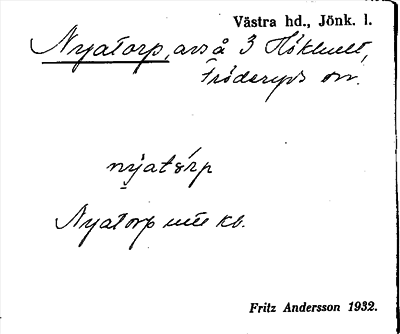 Västra hd., Jönk. l.
Nyatorp, avs å 3 Hökhult,
Fröderyds sn.
nyatórp
Nyatorp ute kb.
Fritz Andersson 1932.